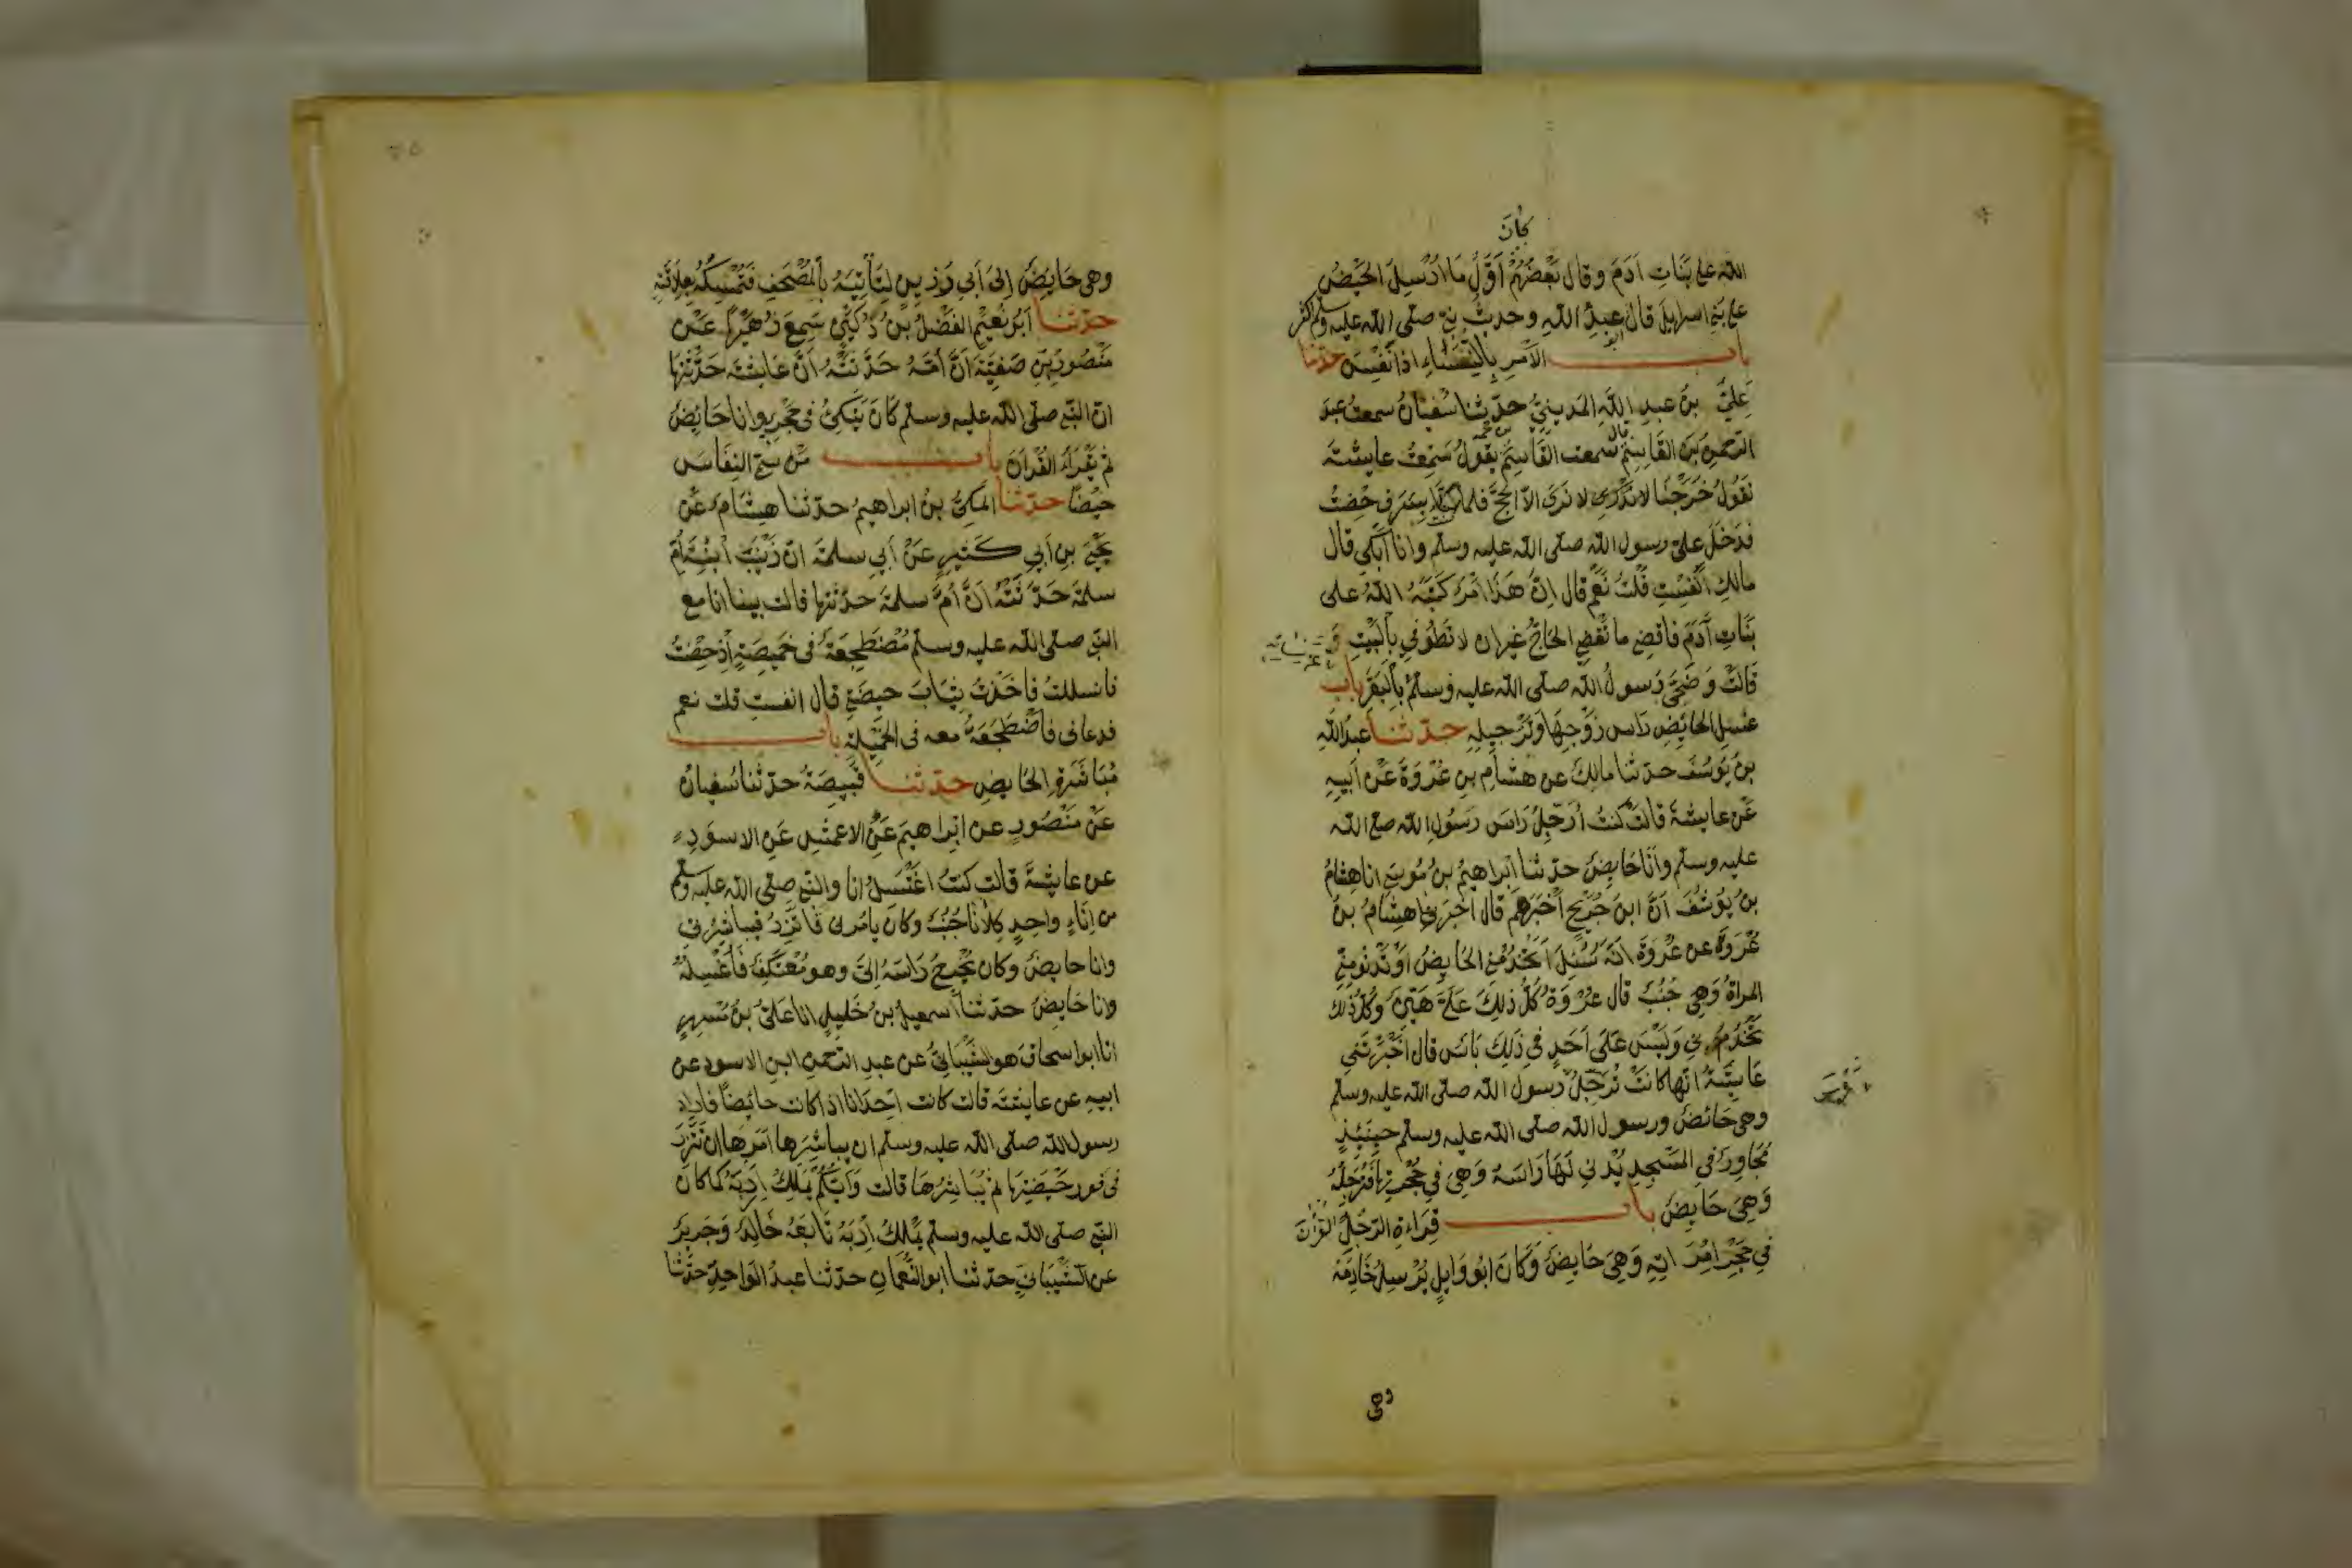 كان
الله على بنات آدم وقال بعضهم أول ما أرسل الحيض
على بني اسرايل قال عبد الله وحديث النبي صلى الله عليه وسلم اكثر
باب الأمر بالنفساء اذا نفسن حدثنا
علي بن عبد الله المديني حدثنا سفيان سمعت عبد
الرحمن بن القاسم قال سمعت القاسم يقول سمعت عايشة
تقول خرجنا لا نرى الا الحج فلما كنا بسرف حضت
فدخل علي رسول الله صلى الله عليه وسلم وانا أبكي قال
مالك أنفست قلت نعم قال إن هذا أمر كتبه الله على
بنات آدم فاقضي ما يقضي الحاج غير ان لا تطوفي بالبيت
قالت وضحى رسول الله صلى الله عليه وسلم بالبقر باب
غسل الحايض راس زوجها وترجيله حدثنا عبد الله
بن يوسف حدثنا مالك عن هشام بن عروة عن أبيه
عن عايشة قالت كنت أرجل راس رسول الله صلى الله
عليه وسلم وأنا حايض حدثنا ابراهيم بن موسى انا هشام
بن يوسف أن ابن جريج أخبرهم قال اخبرني هشام بن
عروة عن عروة انه سئل اتخدمني الحايض او تدنو مني
المراة وهي جنب قال عروة كل ذلك علي هين وكل ذلك
تخدمني وليس على أحد في ذلك بأس قال اخبرتني
عايشة انها كانت ترجل رسول الله صلى الله عليه وسلم
وهي حائض ورسول الله صلى الله عليه وسلم حينئذ
مجاور في المسجد يدني لها راسه وهي في حجرتها فترجله
وهي حايض باب قراءة الرجل القران
في حجر امراته وهي حايض وكان ابو وايل يرسل خادمه
وهي
وهي حايض إلى أبي رزين لتأتيه بالمصحف فتمسكه بعلاقته
حدثنا أبو نعيم الفضل بن دكين سمع زهيرا عن
منصور بن صفية أن أمه حدثته أن عايشة حدثتها
ان النبي صلى الله عليه وسلم كان يتكئ في حجري وانا حائض
ثم يقرأ القرآن باب من سمى النفاس
حيضا حدثنا المكي بن ابراهيم حدثنا هشام عن
يحيى بن أبي كثير عن أبي سلمة ان زينب ابنة أم
سلمة حدثته ان أم سلمة حدثتها قالت بينا انا مع
النبي صلى الله عليه وسلم مضطجعة في خميصة إذ حضت
فانسللت فاخذت ثياب حيضتي قال انفست قلت نعم
فدعاني فاضطجعت معه في الخميلة باب
مباشرة الحايض حدثنا قبيصة حدثنا سفيان
عن منصور عن ابراهيم عن الاعمش عن الاسود
عن عايشة قالت كنت اغتسل انا والنبي صلى الله عليه وسلم
من إناء واحد كلانا جنب وكان يامرني فاتزر فيباشرني
وانا حايض وكان يخرج راسه إلي وهو معتكف فأغسله
وانا حايض حدثنا اسمعيل بن خليل انا علي بن مسهر
انا ابو اسحاق هو الشيباني عن عبد الرحمن ابن الاسود عن
ابيه عن عايشة قالت كانت احدانا اذا كانت حائضا فاراد
رسول الله صلى الله عليه وسلم ان يباشرها امرها ان تتزر
في فور حيضتها ثم يباشرها قالت وأيكم يملك إربه كما كان
النبي صلى الله عليه وسلم يملك إربه تابعه خالد وجرير
عن الشيباني حدثنا ابو النعمان حدثنا عبد الواحد حدثنا